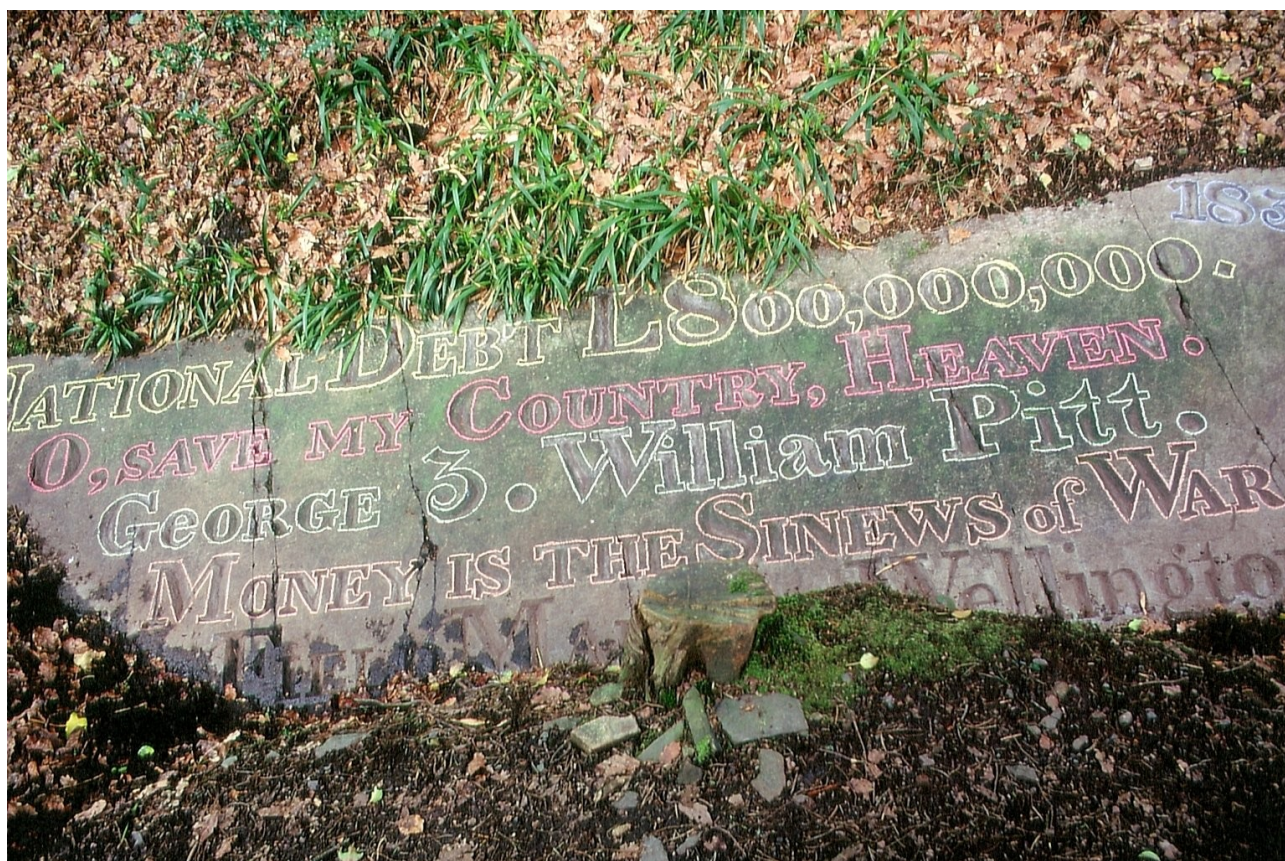 183
NATIONAL DEBT L800,000,000.
O, SAVE MY COUNTRY, HEAVEN!
GEORGE 3. William Pitt.
MONEY IS THE SINEWS of WAR
FIELD MA Wellingto